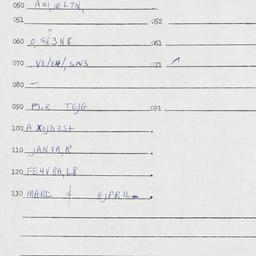 050 ANI,MLTN,
051 052
060 O,S83N8 061
070 , VE/E4/,SN3 071
080 —
090 M.R TEJG 091
100 A XOJD3S+
110 JANVA,R
120 FE4VRA,L8
130 MARC & EJPRIL